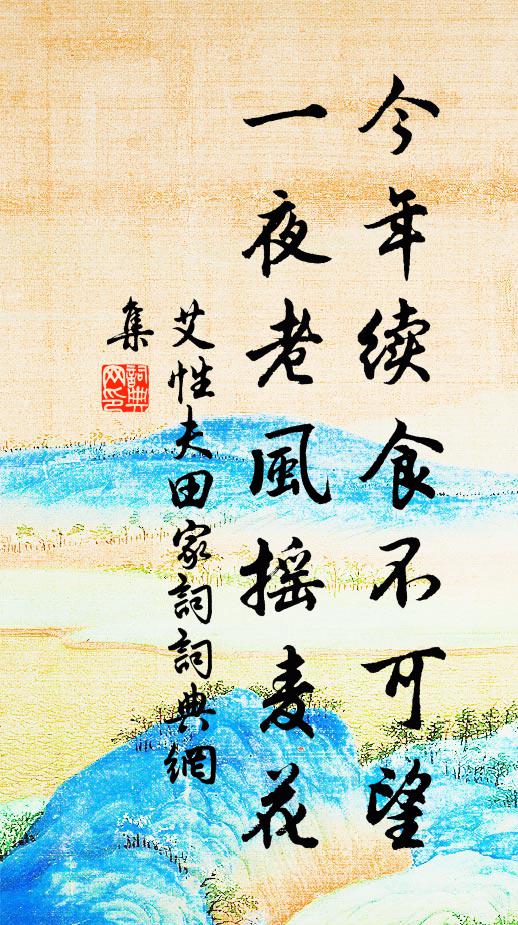 今年续食不可望
一夜老風摇麦花
艾性夫田家詞詞典網
集
詞典網印